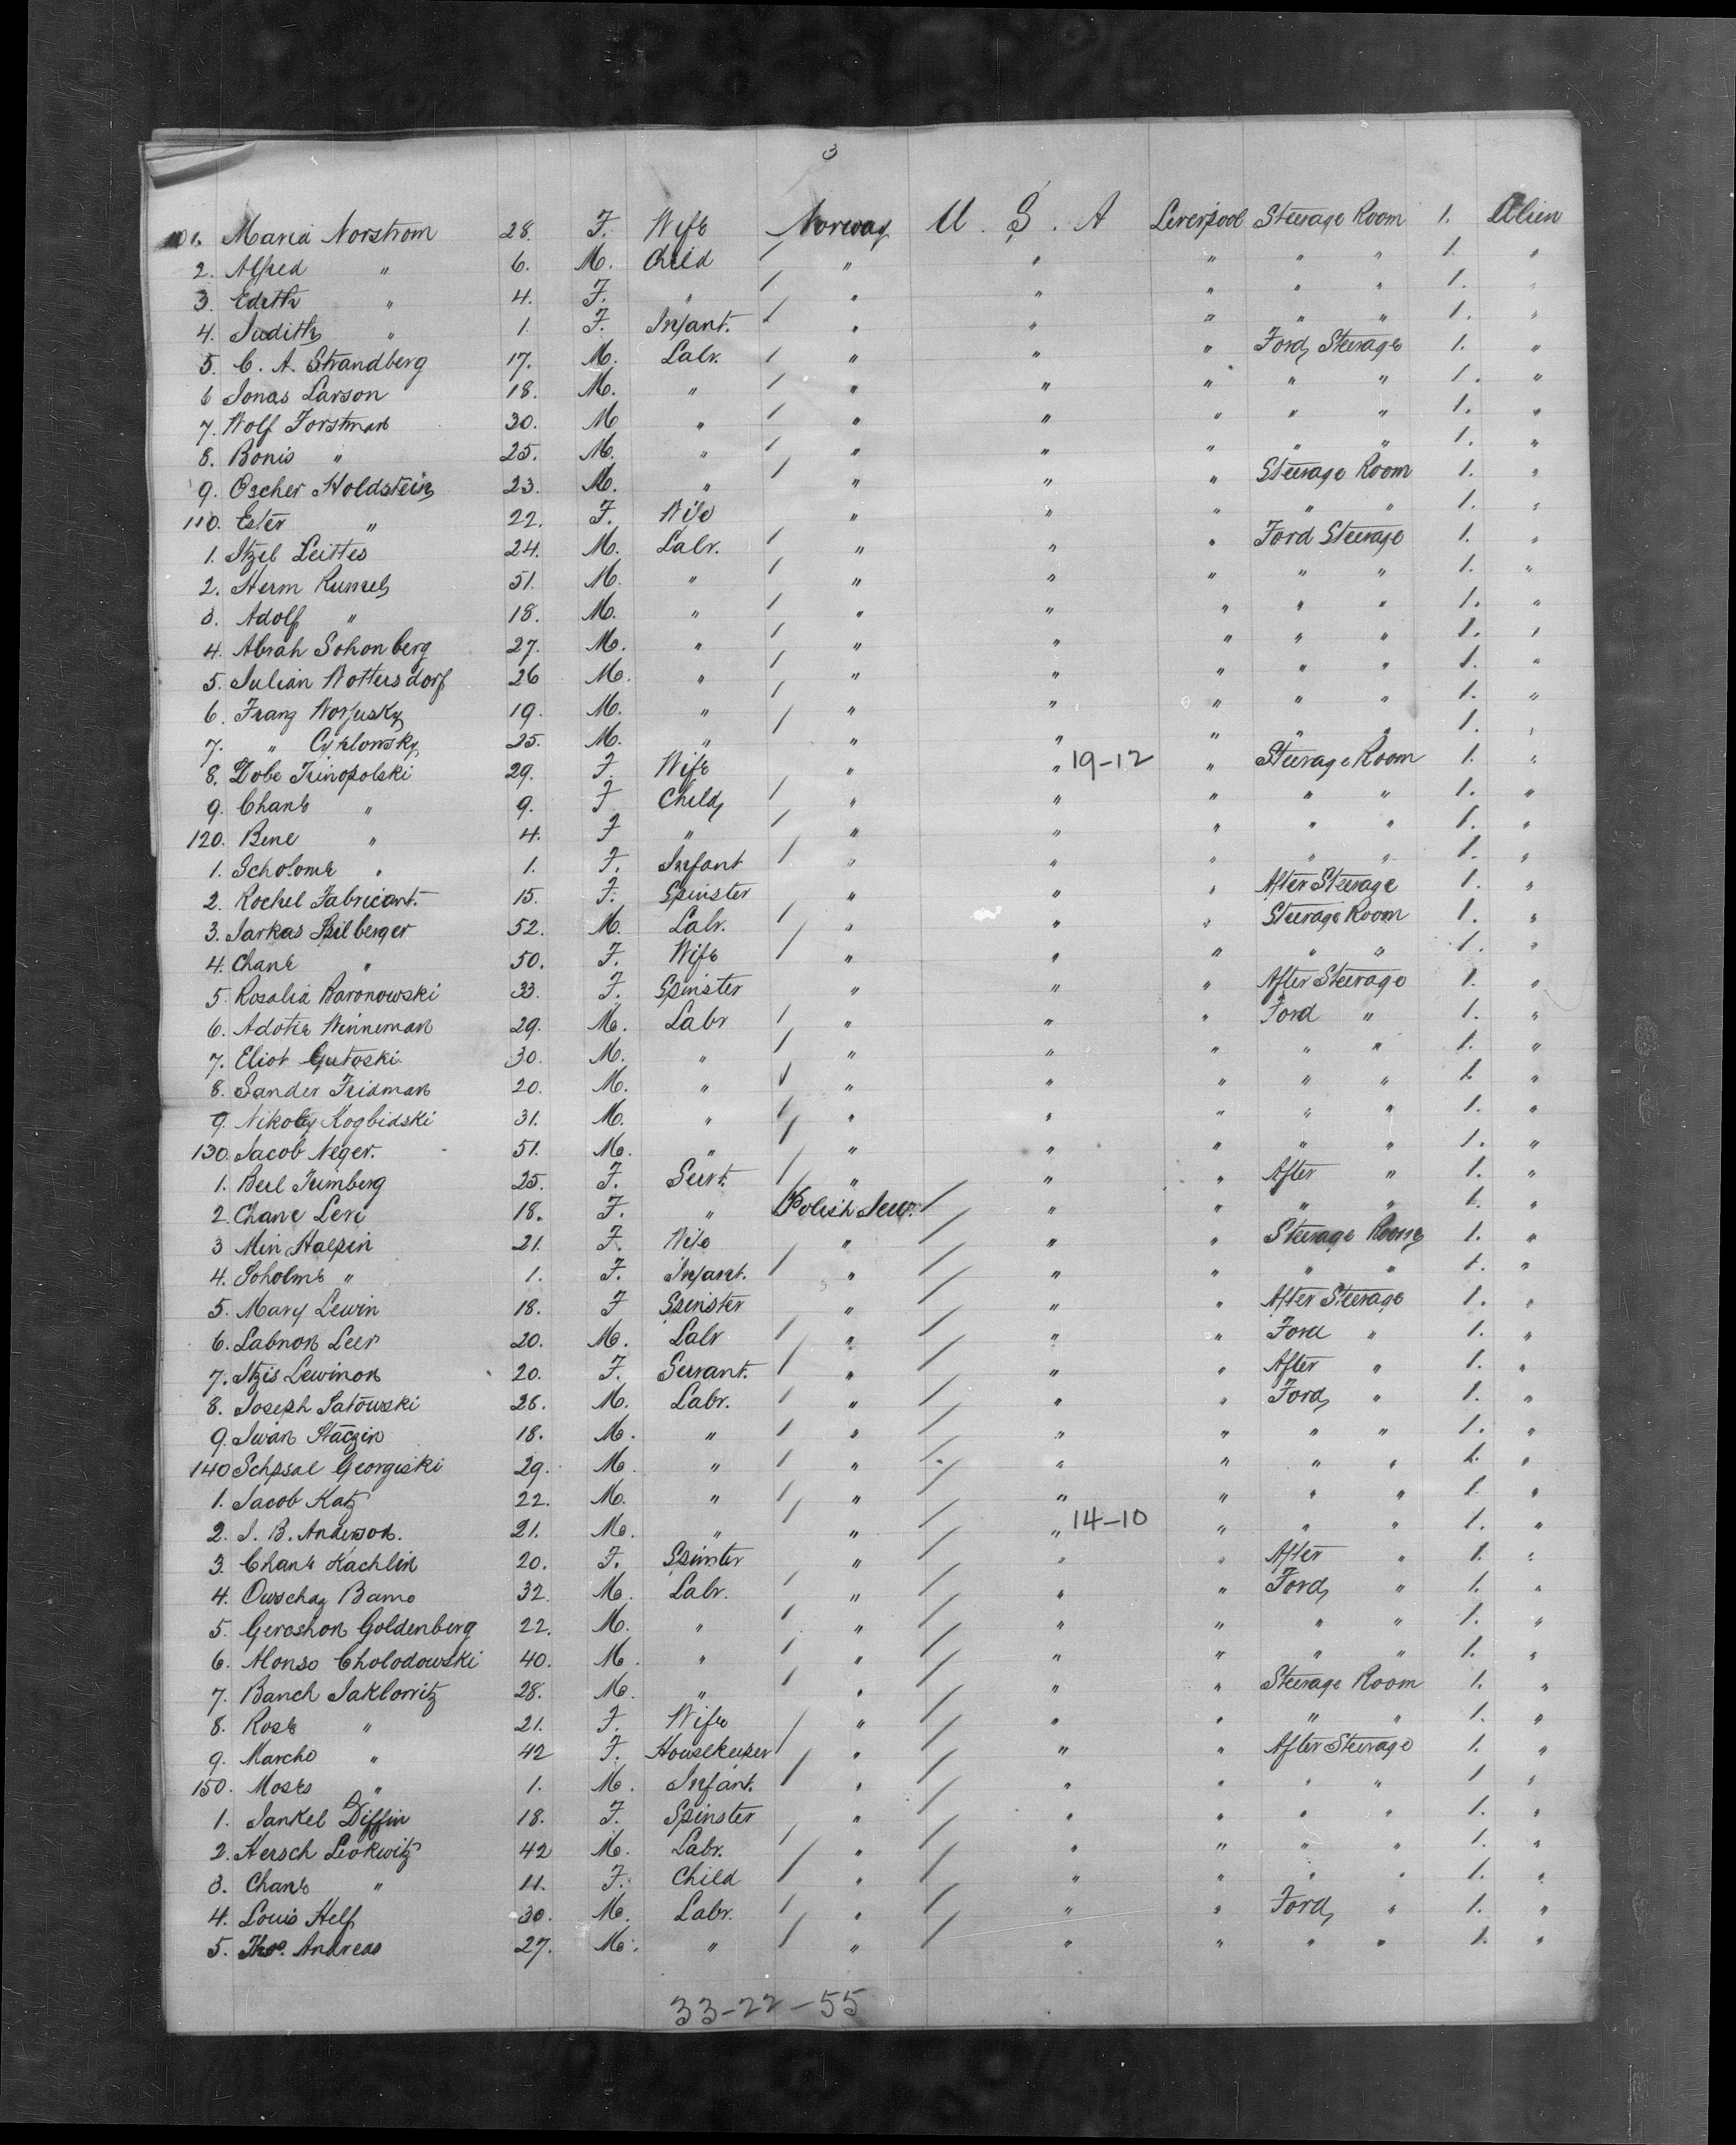 3
101. Maria Norstrom 28. F. Wife Norway U. S. A Liverpool Steerage Room 1. Alien
2. Alfred " 6. M. Child / " " " " " 1. "
3. Edith " 4. F. " / " " " " " 1. "
4. Judith " 1. F. Infant. / " " " " " 1. "
5. C. A. Strandberg 17. M. Labr. / " " " Ford, Steerage 1. "
6 Jonas Larson 18. M. " / " " " " " 1. "
7. Wolf Forstman 30. M " / " " " " " 1. "
8. Bonis " 25. M. " / " " " " " 1. "
9. Oscher Holdstein 23. M. " / " " " Steerage Room 1. "
110. Ester " 22. F. Wife " " " " " 1. "
1. Itzel Leittes 24. M. Labr. / " " " Ford Steerage 1. "
2. Herm 51. M. " / " " " " " 1. "
3. Adolf " 18. M. " / " " " " " 1. "
4. Abrah Schonberg 27. M. " / " " " " " 1. "
5. Julian Wottersdorf 26 M. " / " " " " " 1. "
6. Franz 19. M. " / " " " " " 1. "
7. " Cyklowsky 25. M. " / " " " " " 1. "
8. Zobe Trinopolski 29. F. Wife " " 19-12 " Steerage Room 1. "
9. Chane " 9. F. Child, / " " " " " 1. "
120. Bene " 4. F " / " " " " " 1. "
1. Scholome " 1. F. Infant / " " " " " 1. "
2. Rochel Fabricant. 15. F. Spinster " " " After Steerage 1. "
3. Sarkas Silberger 52. M. Labr. / " " " Steerage Room 1. "
4. Chane " 50. F. Wife / " " " " " 1. "
5. Rosalia Baronowski 33. F. Spinster " " " After Steerage 1. "
6. Adotie Winneman 29. M. Labr / " " " Ford " 1. "
7. Eliot Gutoski 30. M. " / " " " " " 1. "
8. Sander Fridman 20. M. " / " " " " " 1. "
9. Nikoley Kogbidski 31. M. " / " " " " " 1. "
130. Jacob Neger. 51. M. " / " " " " " 1. "
1. Berl Trimberg 25. F. Servt. / " " " After " 1. "
2. Chane Levi 18. F. " Polish Jew. / " " " " 1. "
3 Min Halpin 21. F. Wife " " " Steerage Room 1. "
4. Soholme " 1. F. Infant. / " / " " " " 1. "
5. Mary Lewin 18. F Spinster " / " " After Steerage 1. "
6. Labnon Leer 20. M. Labr / " / " " Ford " 1. "
7. Itzis Lewinon 20. F. Servant. / " / " " After " 1. "
8. Joseph Satowski 28. M. Labr. / " / " " Ford, " 1. "
9. Iwan Staczin 18. M. " / " / " " " " 1. "
140 Schpsal Georgiski 29. M. " / " / " " " " 1. "
1. Jacob Katz 22. M. " / " / " " " " 1. "
2. J. B. Anderson. 21. M. " / " / " 14-10 " " " 1. "
3. Chane Kachlin 20. F. Spinster " / " " After " 1. "
4. Owschay Bamo 32. M. Labr. / " / " " Ford, " 1. "
5. Geroshon Goldenberg 22. M. " / " / " " " " 1. "
6. Alonso Cholodowski 40. M. " / " / " " " " 1. "
7. Banch Saklowitz 28. M. " / " / " " Steerage Room 1. "
8. Rose " 21. F. Wife / " / " " " " 1. "
9. Marcho " 42 F. Housekeeper / " / " " After Steerage 1. "
150. Moses " 1. M. Infant. / " / " " " " 1 "
1. Jankel Diffin 18. F. Spinster " / " " " " 1. "
2. Hersch Leokwitz 42 M. Labr. / " / " " " " 1. "
3. Chane " 11. F. Child / " / " " " " 1. "
4. Louis Helf 30. M. Labr. / " / " " Ford, " 1. "
5. Thos. Andreas 27. M. " / " / " " " " 1. "
33-22-55